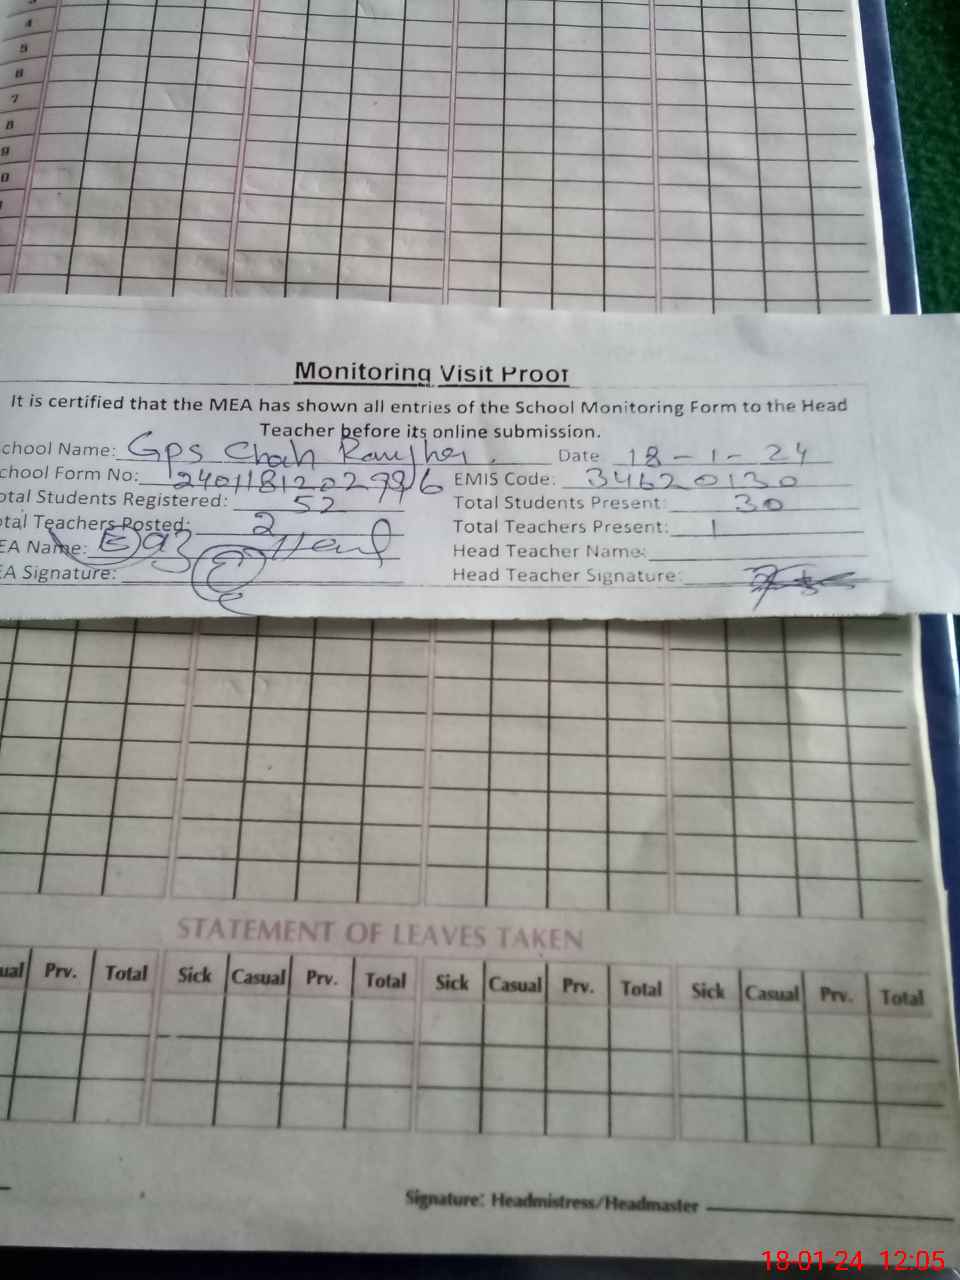 4
5
6
7
8
9
0
Monitoring Visit Proof
It is certified that the MEA has shown all entries of the School Monitoring Form to the Head
Teacher before its online submission.
chool Name: Gps Chah Ranjher. Date 18-1-24
chool Form No: EMIS Code: 34620130
otal Students Registered: 52 Total Students Present: 30
otal Teachers Posted: 2 Total Teachers Present: 1
EA Name: Head Teacher Name:
EA Signature: Head Teacher Signature:
STATEMENT OF LEAVES TAKEN
ual Prv. Total Sick Casual Prv. Total Sick Casual Prv. Total Sick Casual Prv. Total
Signature: Headmistress/Headmaster
18-01-24 12:05